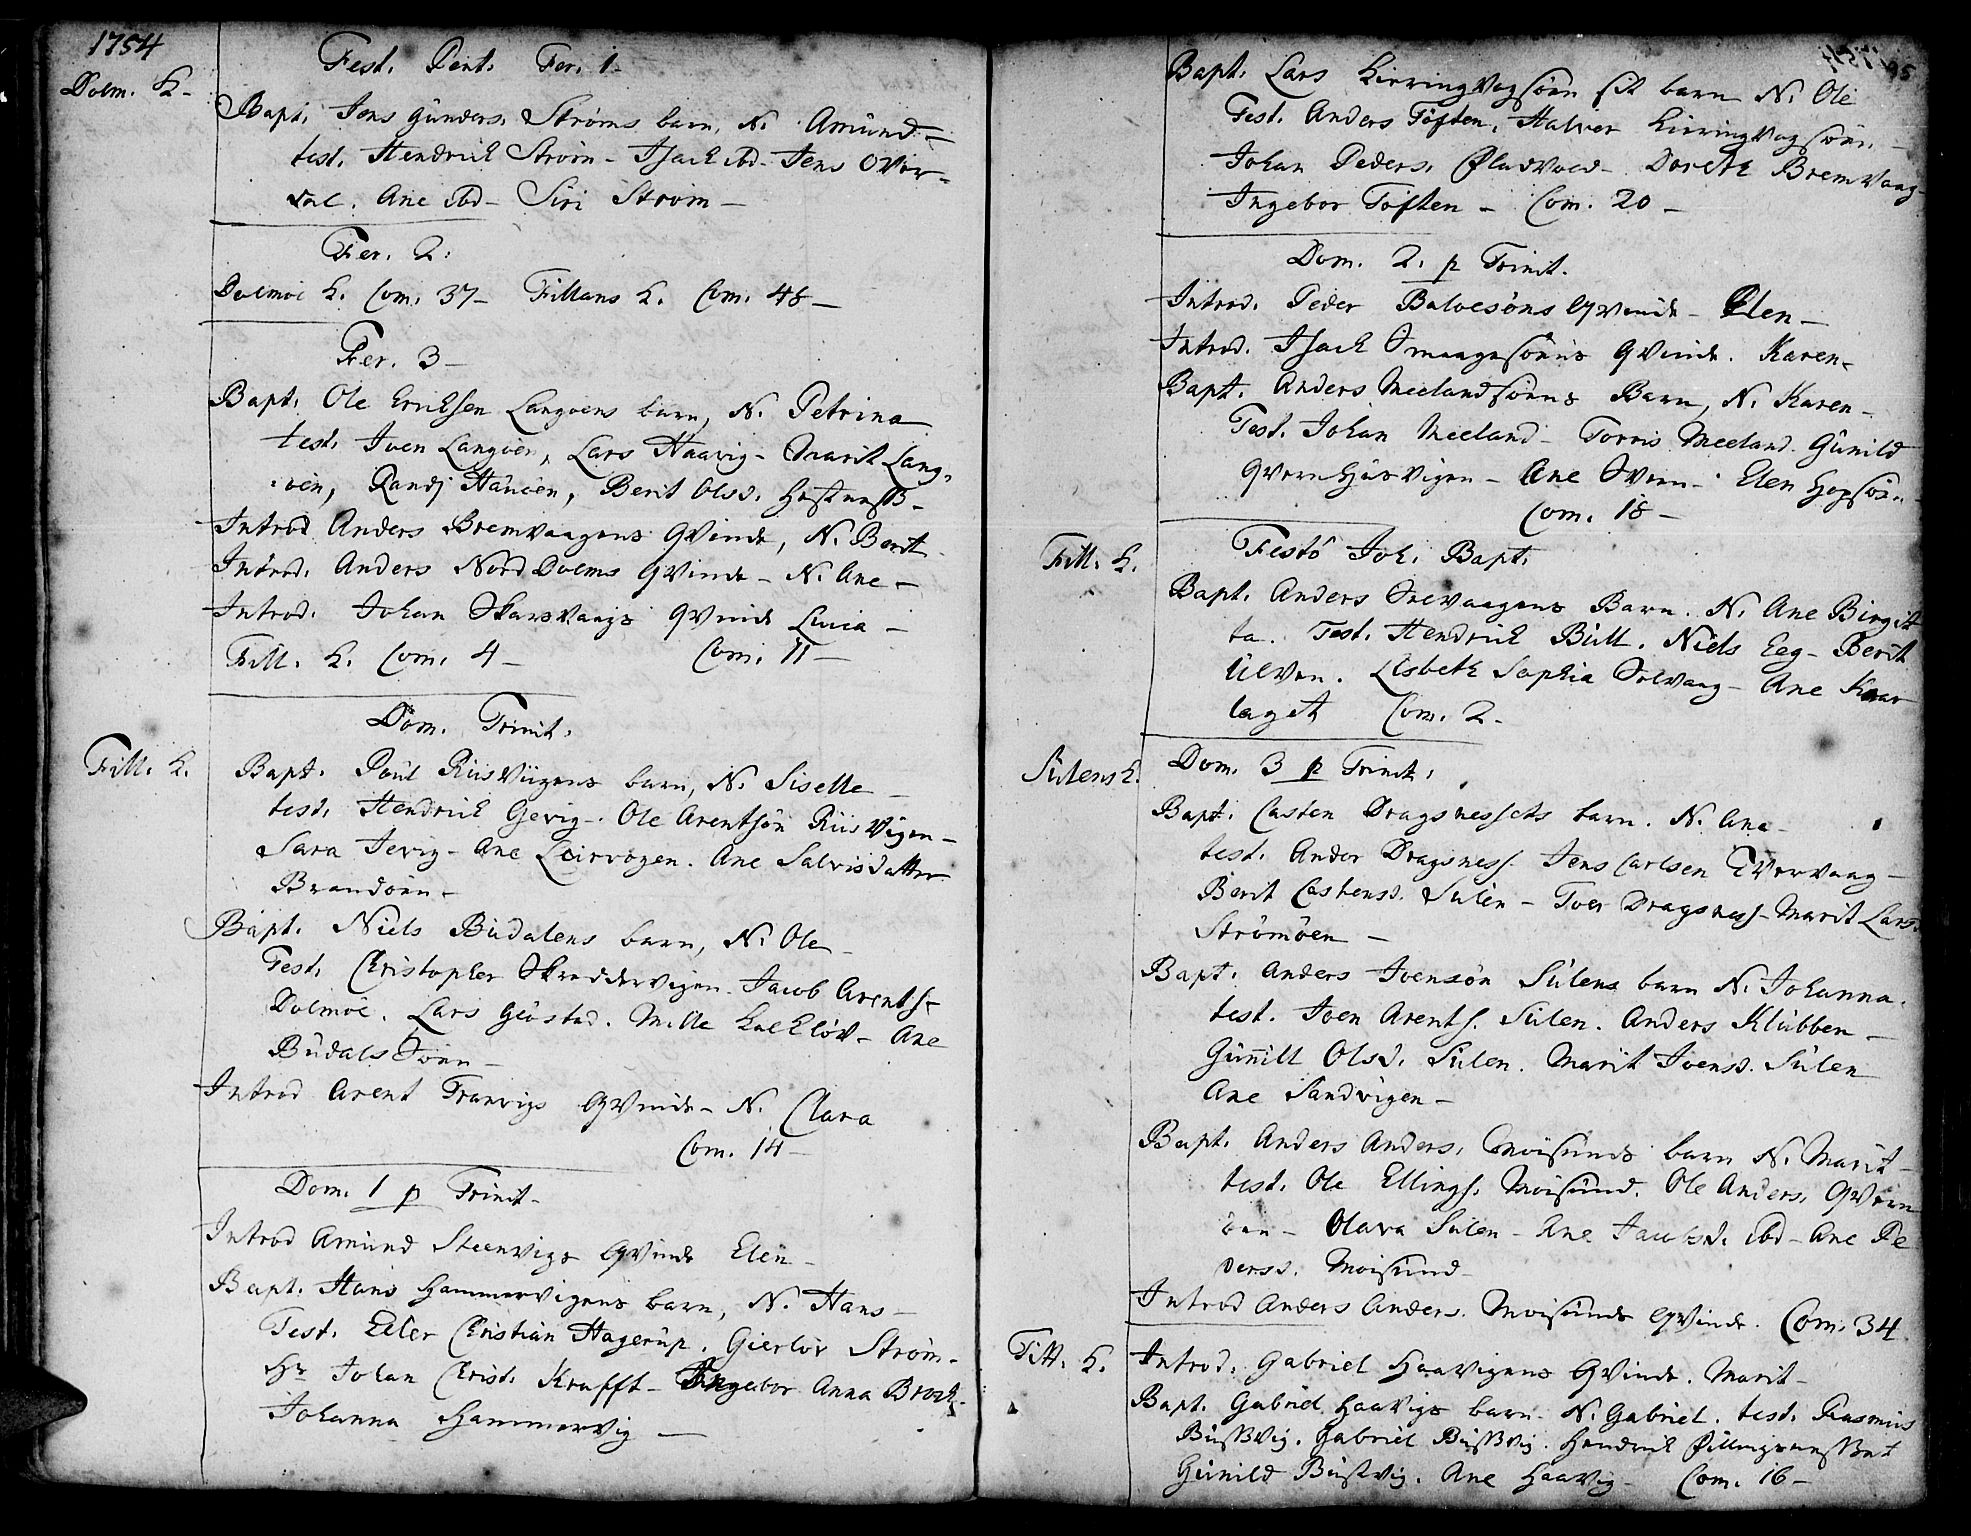 1754
Dolm. K.
Fest. Pent. Fer. 1.
Bapt. Jens Gunders. Strøms barn, N. Amund
test. Hendrich Strøm - Isach ibd - Jens Over-
dal. Ane ibd - Siri Strøm -
Fer. 2.
Dolmøe K. Com. 37 - Fillans K. Com. 48 -
Fer. 3 -
Bapt. Ole Erichsen Langøens barn, N. Petrina
test. Iven Langøen, Lars Haavig - Marit Lang-
øen, Randj Berit Olsd.
Introd Anders Bremvaagens Qvinde, N. Berit
Introd. Anders Nord Dolms Qvinde - N. Ane -
Introd. Johan Skarsvaags Qvinde Lucia -
Fill. K. Com. 4 - Com. 11 -
Dom. Trinit.
Fill. K.
Bapt. Poul Riisviigens barn, N. Siselle -
test. Hendrich Gevig - Ole Arentsøn Riisvigen -
Sara Jevig - Ane Leirvogen. Ane Salvisdatter
Brandøen -
Bapt. Niels Budalens barn, N. Ole -
Test. Christopher Skreddervigen - Jacob Arents.
Dolmøe. Lars Giøstad. Mille Kalkløv - Ane
Budals Søen -
Introd Arent Tranvigs Qvinde - N. Clara
Com. 14 -
Dom. 1 p Trinit -
Introd Amund Steenvigs Qvinde Elen -
Bapt. Hans Hammervigens barn, N. Hans -
Test. Eiler Christian Hagerup. Gierløv Strøm -
Hr Johan Christ. Krafft - Ingebor Anna Broch -
Johanna Hammervig -
95
Bapt. Lars Kierringvogsøen sit barn N. Ole
Test. Anders Toften, Halver Kierringvogsøen -
Johan Peders. Dorethe Bremvaag -
Ingebor Toften - Com. 20 -
Dom. 2. p Trinit.
Introd. Peder Balvesøns Qvinde - Elen -
Introd. Isach Smaagesøens Qvinde. Karen -
Bapt. Anders Meelandsøens Barn, N. Karen -
Test. Johan Meeland - Torris Meeland. Gunild
Qvernhusvigen - Ane - Elen Hopsøen -
Com. 18 -
Fill. K.
Festo Joh. Bapt.
Bapt. Anders Selvaagens Barn. N. Ane Birgit
ta. Test. Hendrich Bull. Niels Eeg - Berit
Ulven. Lisbeth Sophia Selvaag - Ane Kaar
laget Com. 2 -
Sulens K.
Dom. 3 p Trinit.
Bapt. Casten Dragsnessets barn. N. Ane -
test. Ander Dragsness. Jens Carlsen Tvervaag -
Berit Castensd. Sulen - Toer Dragsness - Marit Larsd.
Strømøen -
Bapt. Anders Ivensøn Sulens barn N. Johanna.
test. Iven Arents. Sulen. Anders Klubben -
Gunnill Olsd. Sulen. Marit Ivensd. Sulen
Ane Sandvigen -
Bapt. Anders Anders. Moisunds barn N. Marit -
test. Ole Ellings. Moisund. Ole Anders. Qvern
øen - Olava Sulen - Ane Jacobsd. ibd - Ane Pe
dersd. Moisund -
Introd Anders Anders. Moisunds Qvinde. Com. 34
Fill. K.
Introd. Gabriel Haavigens Qvinde. Marit -
Bapt. Gabriel Haavigs barn - N. Gabriel. test. Rasmus
Bussvig. Gabriel Bussvig. Hendrich
Gunild Bussvig. Ane Haavig - Com. 16 -